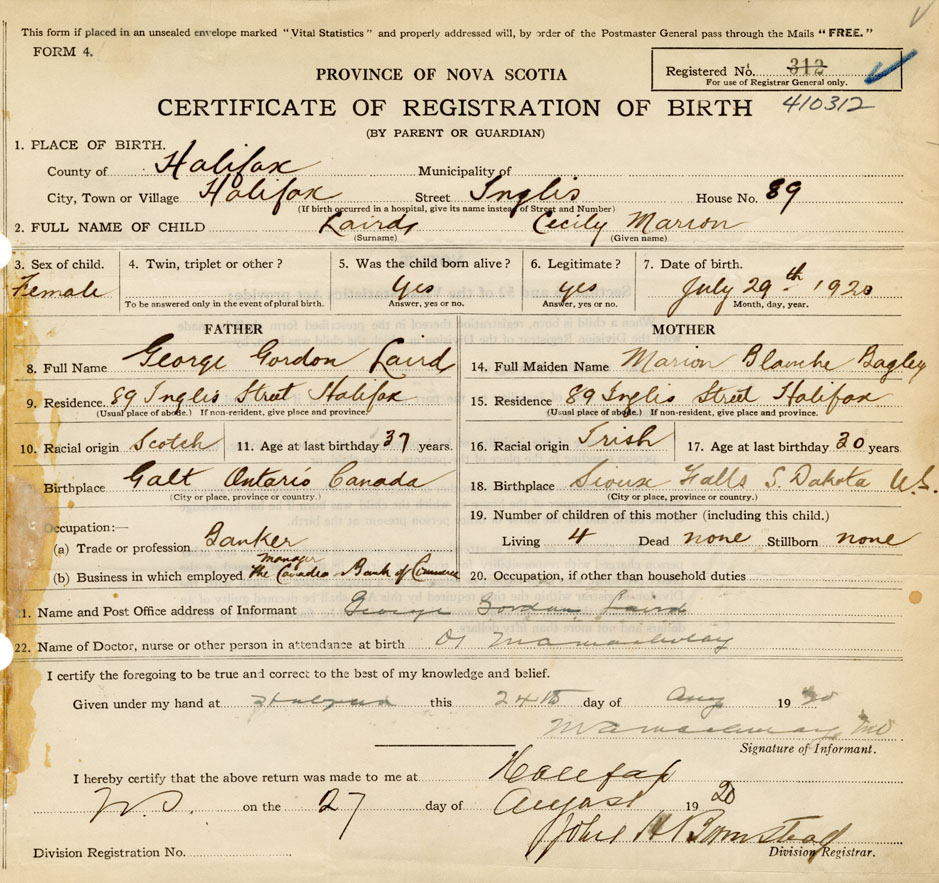 This form if placed in an unsealed envelope marked "Vital Statistics" and properly addressed will, by order of the Postmaster General pass through the Mails "FREE."
FORM 4.
Registered No. 312
For use of Registrar General only.
PROVINCE OF NOVA SCOTIA
CERTIFICATE OF REGISTRATION OF BIRTH 410312
(BY PARENT OR GUARDIAN)
1. PLACE OF BIRTH.
County of Halifax Municipality of
City, Town or Village Halifax Street Inglis House No. 89
(If birth occurred in a hospital, give its name instead of Street and Number)
2. FULL NAME OF CHILD Laird Cecily Marion
(Surname) (Given name)
3. Sex of child. 4. Twin, triplet or other? 5. Was the child born alive? 6. Legitimate? 7. Date of birth.
Female Yes Yes July 29th 1920
To be answered only in the event of plural birth. Answer, yes or no. Answer, yes or no. Month, day, year.
FATHER MOTHER
8. Full Name George Gordon Laird 14. Full Maiden Name Marion Blanche Bagley
9. Residence. 89 Inglis Street Halifax 15. Residence 89 Inglis Street Halifax
(Usual place of abode.) If non-resident, give place and province. (Usual place of abode.) If non-resident, give place and province.
10. Racial origin Scotch 11. Age at last birthday 37 years. 16. Racial origin Irish 17. Age at last birthday 30 years
Birthplace Galt Ontario Canada 18. Birthplace Sioux Falls S. Dakota U.S.
(City or place, province or country.) (City or place, province or country.)
19. Number of children of this mother (including this child.)
Occupation:—
(a) Trade or profession Banker Living 4 Dead none Stillborn none
manager
(b) Business in which employed the Canadian Bank of Commerce 20. Occupation, if other than household duties
1. Name and Post Office address of Informant George Gordon Laird
22. Name of Doctor, nurse or other person in attendance at birth Dr
I certify the foregoing to be true and correct to the best of my knowledge and belief.
Given under my hand at Halifax this 24th day of Aug 1920
MD
Signature of Informant.
I hereby certify that the above return was made to me at Halifax
N.S. on the 27 day of August 1920
John H
Division Registration No. Division Registrar.